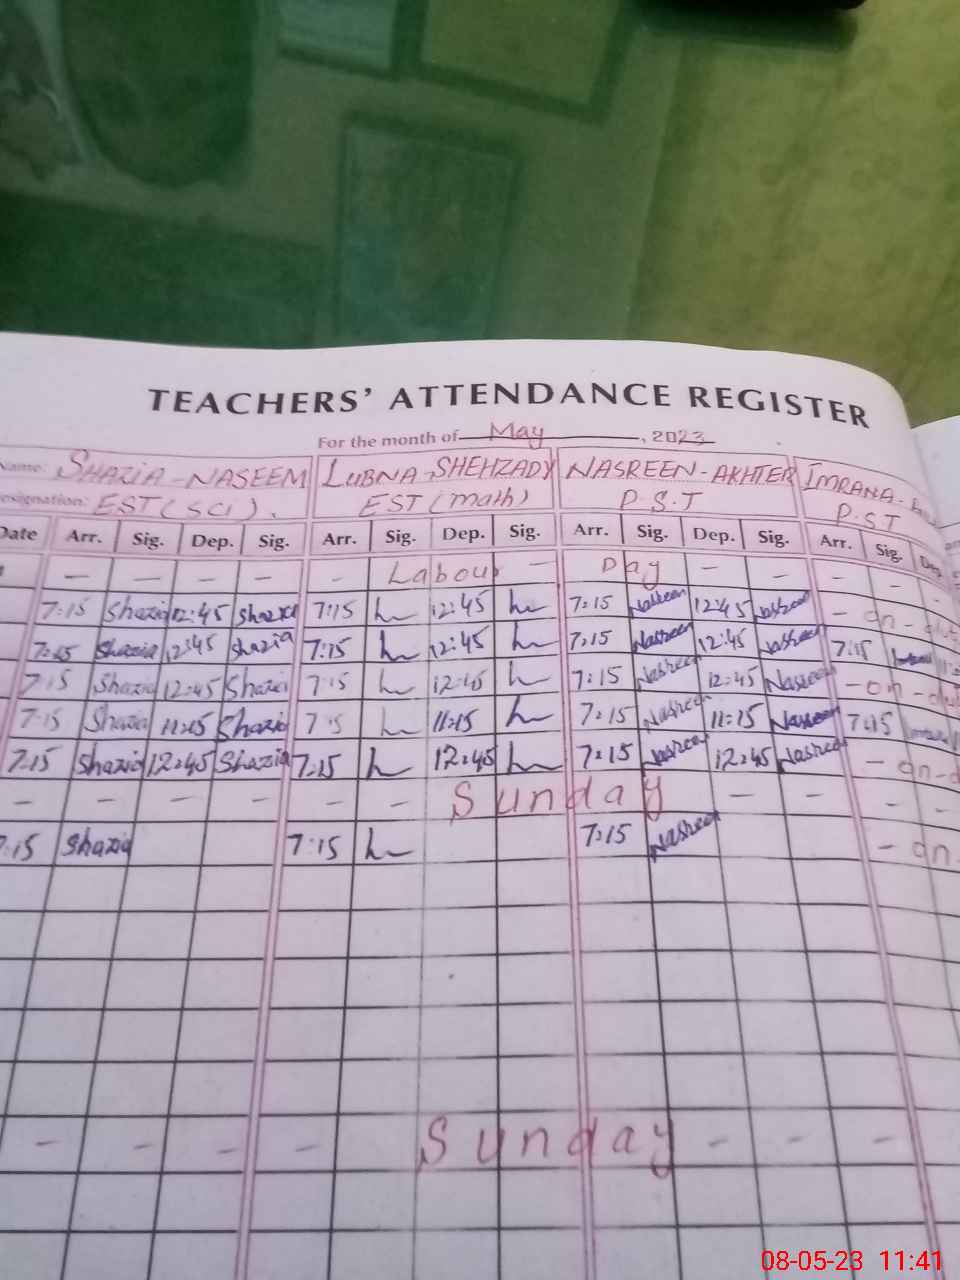 TEACHERS' ATTENDANCE REGISTER
For the month of May, 2023
Name: SHAZIA-NASEEM LUBNA-SHEHZADY NASREEN-AKHTER IMRANA-
Designation: EST(SCI). EST(math) P.S.T P.S.T
Date Arr. Sig. Dep. Sig. Arr. Sig. Dep. Sig. Arr. Sig. Dep. Sig. Arr. Sig. Dep.
- - - - - Labour - Day - - - -
7:15 Shazia 12:45 Shazia 7:15 12:45 7:15 Nasreen 12:45 Nasreen - on-
7:15 Shazia 12:45 Shazia 7:15 12:45 7:15 Nasreen 12:45 Nasreen 7:15
7:15 Shazia 12:45 Shazia 7:15 12:45 7:15 Nasreen 12:45 Nasreen - on-
7:15 Shazia 11:15 Shazia 7:15 11:15 7:15 Nasreen 11:15 Nasreen 7:15
7:15 Shazia 12:45 Shazia 7:15 12:45 7:15 Nasreen 12:45 Nasreen - on-
- - - - - - Sunday - - - -
7:15 Shazia 7:15 7:15 Nasreen - on
- - - - Sunday - - -
08-05-23 11:41